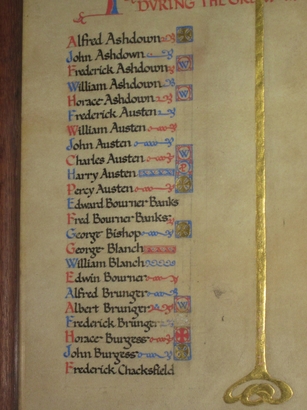 DURING THE GREAT
Alfred Ashdown
John Ashdown
Frederick Ashdown W
William Ashdown
Horace Ashdown W
Frederick Austen
William Austen
John Austen
Charles Austen W
Harry Austen P
Percy Austen
Edward Bourner Banks
Fred Bourner Banks
George Bishop
George Blanch
William Blanch
Edwin Bourner
Alfred Brunger
Albert Brunger W
Frederick Brunger
Horace Burgess
John Burgess
Frederick Chacksfield